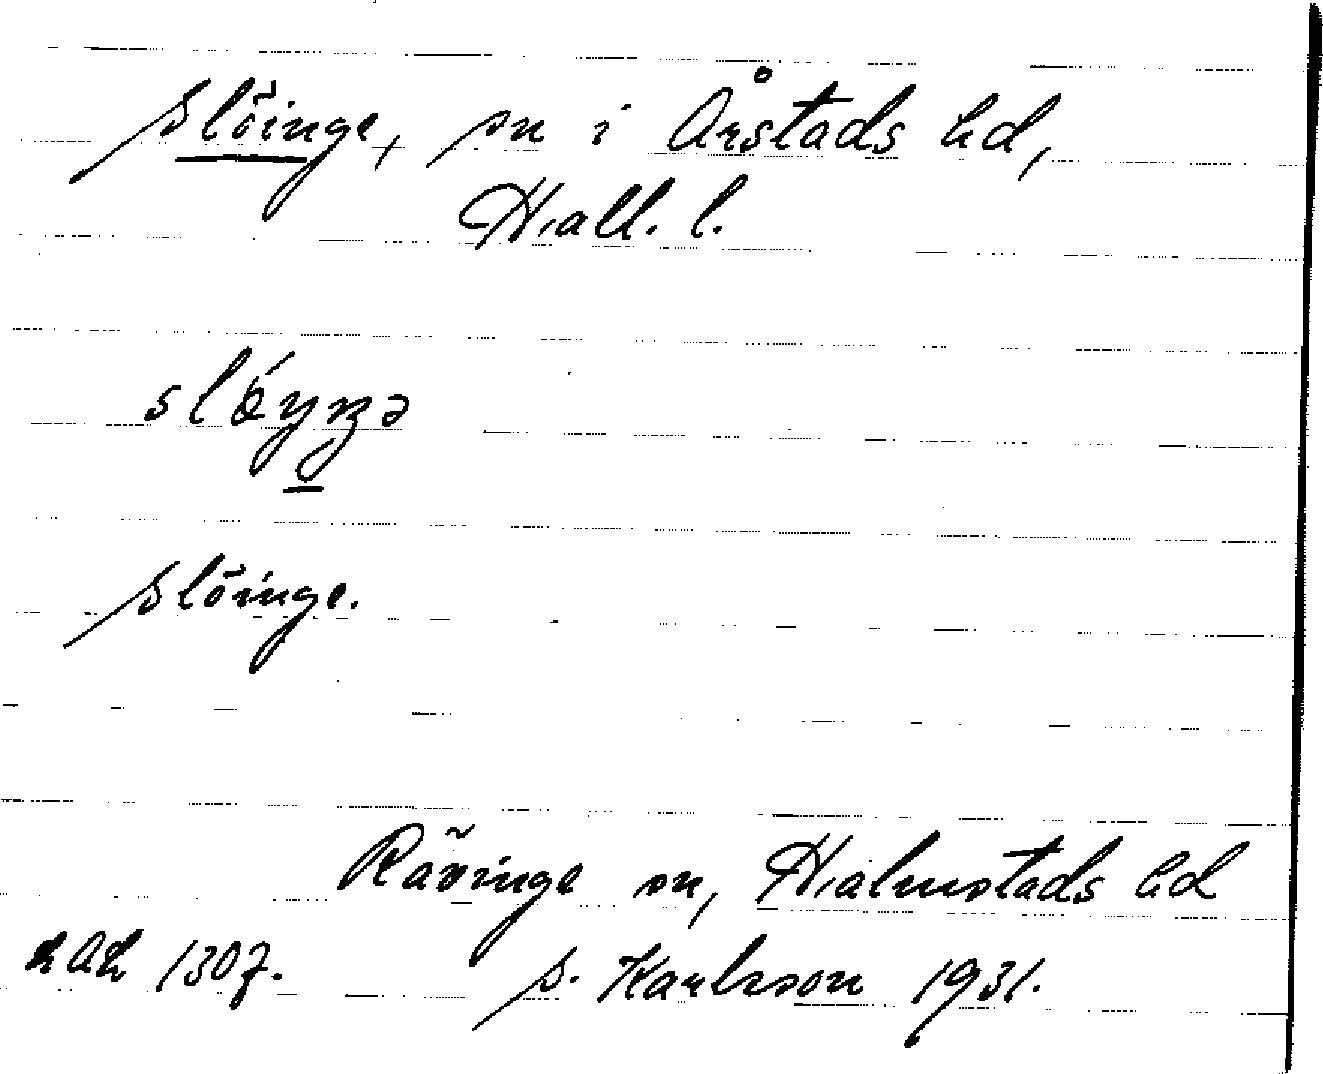 Slöinge, sn i Årstads hd,
Hall. l.
slöyŋə
Slöinge.
Rävinge sn, Halmstads hd
S. Karlsson 1931.